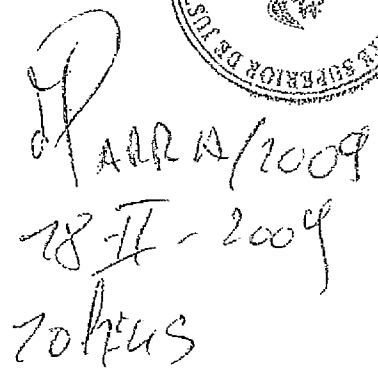 SUPERIOR DE JUS
PARRA/2009
18-II-2009
10